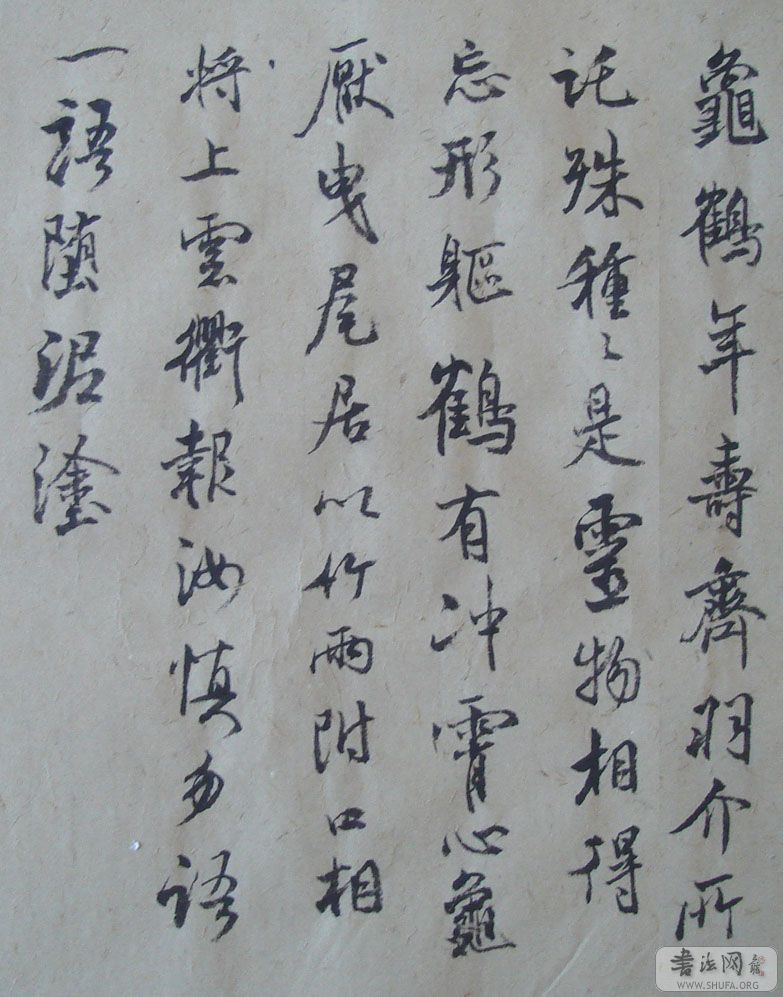 龜鶴年壽齊羽介所
託殊種〻是靈物相得
忘形軀鶴有冲霄心龜
厭曳尾居以竹兩附口相
将上雲衢報汝慎勿語
一語堕泥塗
書法网
WWW.SHUFA.ORG